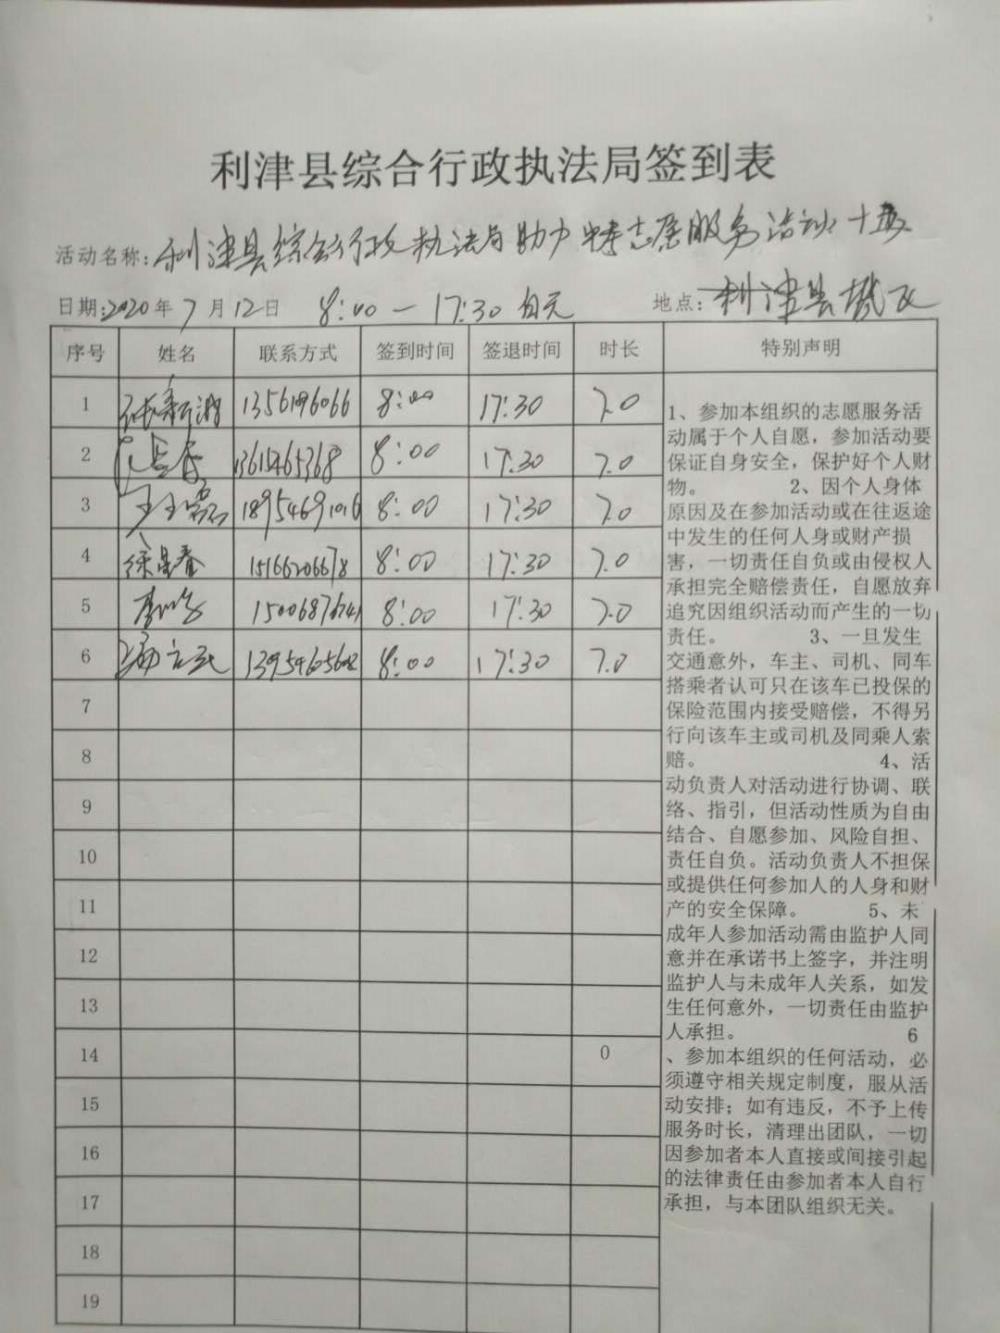 利津县综合行政执法局签到表
活动名称: 利津县综合行政执法局助力 志愿服务活动
日期: 2020年7月12日 8:00—17:30 地点: 利津县城区
序号 姓名 联系方式 签到时间 签退时间 时长 特别声明
1 8:00 17:30 7.0
2 8:00 17:30 7.0
3 8:00 17:30 7.0
4 8:00 17:30 7.0
5 8:00 17:30 7.0
6 8:00 17:30 7.0
7
8
9
10
11
12
13
14 0
15
16
17
18
19
1、参加本组织的志愿服务活
动属于个人自愿，参加活动要
保证自身安全，保护好个人财
物。 2、因个人身体
原因及在参加活动或在往返途
中发生的任何人身或财产损
害，一切责任自负或由侵权人
承担完全赔偿责任，自愿放弃
追究因组织活动而产生的一切
责任。 3、一旦发生
交通意外，车主、司机、同车
搭乘者认可只在该车已投保的
保险范围内接受赔偿，不得另
行向该车主或司机及同乘人索
赔。 4、活
动负责人对活动进行协调、联
络、指引，但活动性质为自由
结合、自愿参加、风险自担、
责任自负。活动负责人不担保
或提供任何参加人的人身和财
产的安全保障。 5、未
成年人参加活动需由监护人同
意并在承诺书上签字，并注明
监护人与未成年人关系，如发
生任何意外，一切责任由监护
人承担。 6
、参加本组织的任何活动，必
须遵守相关规定制度，服从活
动安排；如有违反，不予上传
服务时长，清理出团队，一切
因参加者本人直接或间接引起
的法律责任由参加者本人自行
承担，与本团队组织无关。